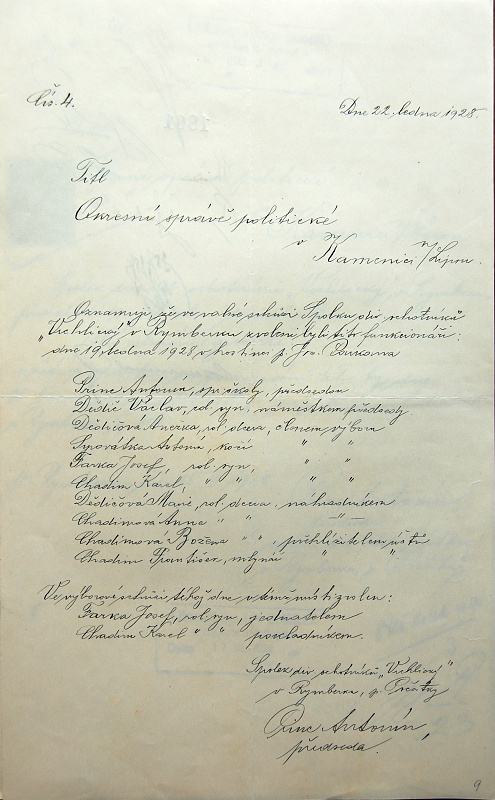 Čís. 4.
Dne 22. ledna 1928.
Titl
Okresní správě politické
v
Kamenici n/Lipou.
Oznamuji, že ve valné schůzi Spolku div. ochotníků
„Vrchlický" v Rymberku zvoleni byli tito funkcionáři:
dne 19. ledna 1928 v hostinci p. Jos.
Princ Antonín, spr. školy, předsedou
Dědič Václav, rol. syn, náměstkem předsedy
Dědičová Anežka, rol. dcera, členem výboru
Antonín, kočí " "
Farka Josef, rol. syn, " "
Chadim Karel, " " " "
Dědičová Marie, rol. dcera, náhradníkem
Chadimova Anna " " —"—
Chadimova Božena " " , přehlížitelem účtů
Chadim František, mlynář " "
Ve výborové schůzi téhož dne v témž místě zvolen:
Farka Josef, rol. syn, jednatelem
Chadim Karel " " pokladníkem.
Spolek div. ochotníků „Vrchlický"
v Rymberku, p. Počátky
Princ Antonín,
předseda.
9